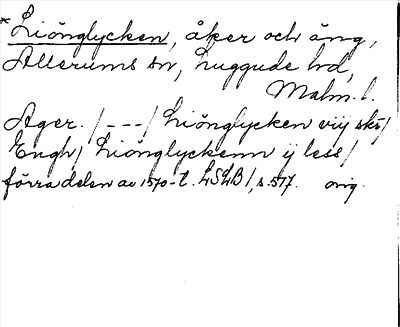 * Liönglycken, åker och äng,
Allerums sn, Luggude hd,
Malm. l.
Ager. /---/ Liönglycken viij skr/
Engh/ Liönglyckenn ij less/
förra delen av 1570-t. LSLB 1, s. 517. orig.